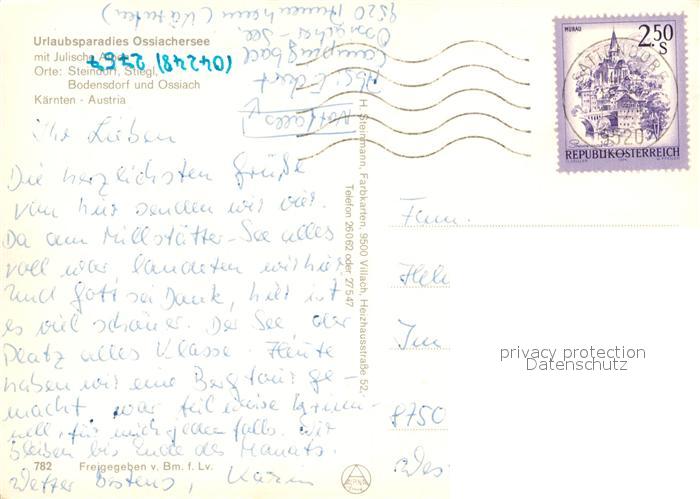 Urlaubsparadies Ossiachersee
mit Julische
Orte: Steindorf, Stiegl,
Bodensdorf und Ossiach
Kärnten - Austria
(04248) 2757
Campingbad
Ossiacher-See
9520 (Kärnten)
Ihr Lieben
Die herzlichsten Grüße
von hier senden wir vier.
Da am Millstätter-See alles
voll war landeten wir hier
und Gott sei Dank, hier ist
es viel schöner. Der See der
Platz alles Klasse. Heute
haben wir eine Bergtour ge-
macht war teilweise
für mich jedenfalls. Wir
bleiben bis Ende des Monats.
Wetter bestens, Karin
782 Freigegeben v. Bm. f. Lv.
H. Steinmann, Farbkarten, 9500 Villach, Herzhausstraße 52,
Telefon 26062 oder 27547
MURAU
2.50
S
REPUBLIK ÖSTERREICH
SATTENDORF
9520
Fam.
Im
8750
privacy protection
Datenschutz